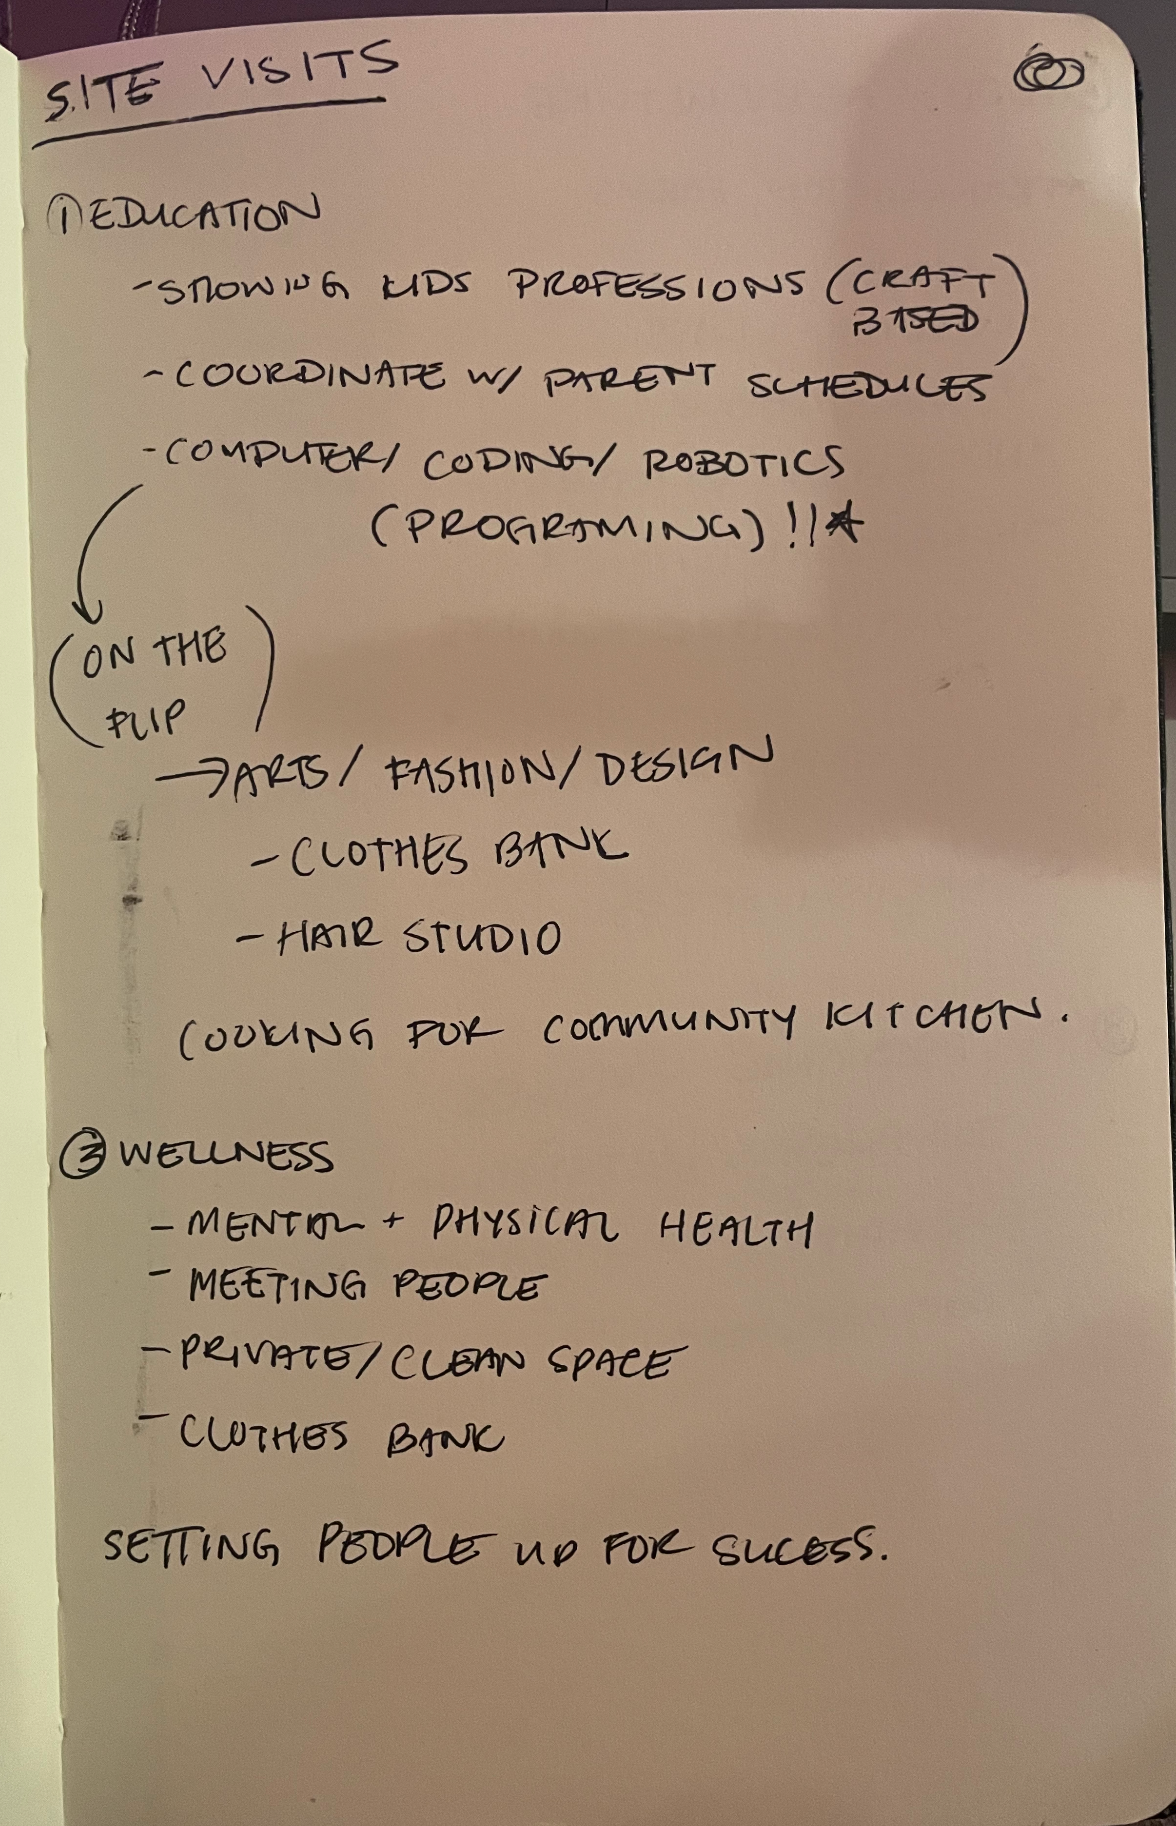 SITE VISITS
① EDUCATION
- SHOWING KIDS PROFESSIONS (CRAFT
BASED)
- COORDINATE W/ PARENT SCHEDULES
- COMPUTER/ CODING/ ROBOTICS
(PROGRAMING) !!★
(ON THE
FLIP)
→ ARTS/ FASHION/ DESIGN
- CLOTHES BANK
- HAIR STUDIO
COOKING FOR COMMUNITY KITCHEN.
③ WELLNESS
- MENTAL + PHYSICAL HEALTH
- MEETING PEOPLE
- PRIVATE/CLEAN SPACE
- CLOTHES BANK
SETTING PEOPLE UP FOR SUCESS.